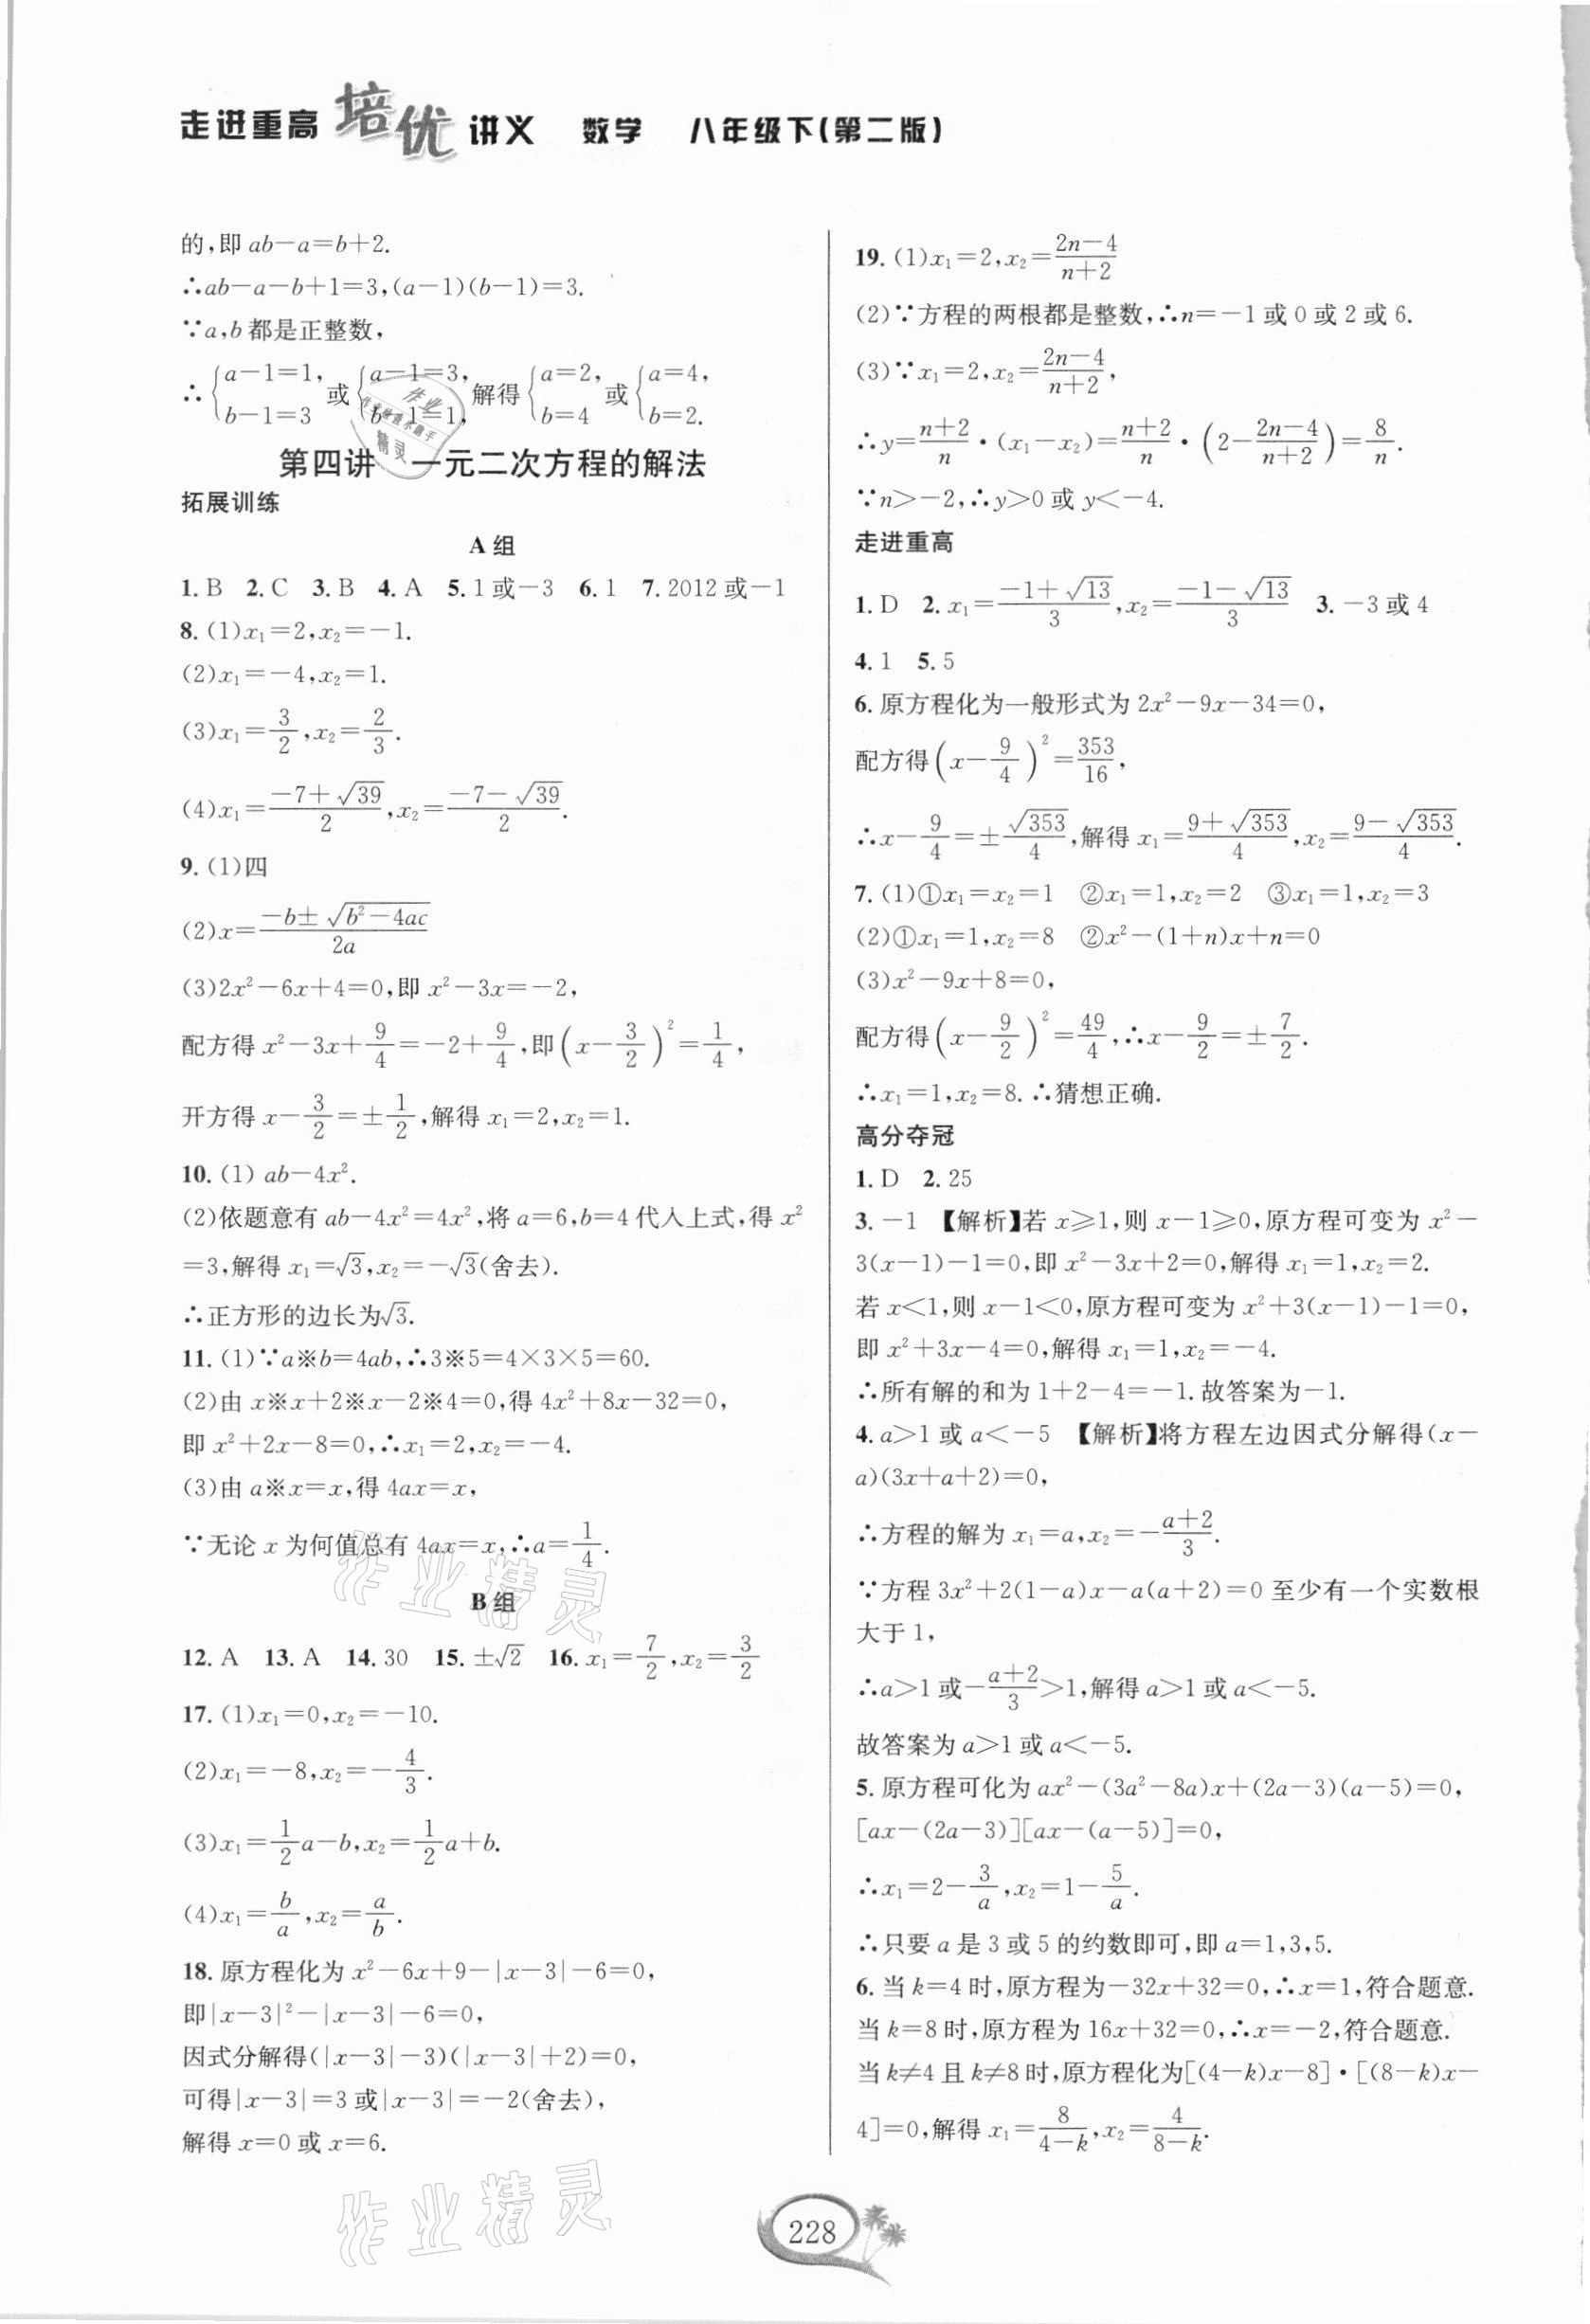 走进重高 培优 讲义 数学 八年级下(第二版)
的,即 ab－a＝b＋2.
∴ab－a－b＋1＝3,(a－1)(b－1)＝3.
∵a,b 都是正整数,
∴{a－1＝1, b－1＝3 或{a－1＝3, b－1＝1, 解得{a＝2, b＝4 或{a＝4, b＝2.
第四讲 一元二次方程的解法
拓展训练
A 组
1. B 2. C 3. B 4. A 5. 1 或－3 6. 1 7. 2012 或－1
8. (1)x₁＝2,x₂＝－1.
(2)x₁＝－4,x₂＝1.
(3)x₁＝3/2,x₂＝2/3.
(4)x₁＝(－7＋√39)/2,x₂＝(－7－√39)/2.
9. (1)四
(2)x＝(－b±√(b²－4ac))/2a
(3)2x²－6x＋4＝0,即 x²－3x＝－2,
配方得 x²－3x＋9/4＝－2＋9/4,即(x－3/2)²＝1/4,
开方得 x－3/2＝±1/2,解得 x₁＝2,x₂＝1.
10. (1) ab－4x².
(2)依题意有 ab－4x²＝4x²,将 a＝6,b＝4 代入上式,得 x²
＝3,解得 x₁＝√3,x₂＝－√3(舍去).
∴正方形的边长为√3.
11. (1)∵a※b＝4ab,∴3※5＝4×3×5＝60.
(2)由 x※x＋2※x－2※4＝0,得 4x²＋8x－32＝0,
即 x²＋2x－8＝0,∴x₁＝2,x₂＝－4.
(3)由 a※x＝x,得 4ax＝x,
∵无论 x 为何值总有 4ax＝x,∴a＝1/4.
B 组
12. A 13. A 14. 30 15. ±√2 16. x₁＝7/2,x₂＝3/2
17. (1)x₁＝0,x₂＝－10.
(2)x₁＝－8,x₂＝－4/3.
(3)x₁＝1/2a－b,x₂＝1/2a＋b.
(4)x₁＝b/a,x₂＝a/b.
18. 原方程化为 x²－6x＋9－|x－3|－6＝0,
即|x－3|²－|x－3|－6＝0,
因式分解得(|x－3|－3)(|x－3|＋2)＝0,
可得|x－3|＝3 或|x－3|＝－2(舍去),
解得 x＝0 或 x＝6.
19. (1)x₁＝2,x₂＝(2n－4)/(n＋2)
(2)∵方程的两根都是整数,∴n＝－1 或 0 或 2 或 6.
(3)∵x₁＝2,x₂＝(2n－4)/(n＋2),
∴y＝(n＋2)/n•(x₁－x₂)＝(n＋2)/n•(2－(2n－4)/(n＋2))＝8/n.
∵n＞－2,∴y＞0 或 y＜－4.
走进重高
1. D 2. x₁＝(－1＋√13)/3,x₂＝(－1－√13)/3 3. －3 或 4
4. 1 5. 5
6. 原方程化为一般形式为 2x²－9x－34＝0,
配方得(x－9/4)²＝353/16,
∴x－9/4＝±√353/4,解得 x₁＝(9＋√353)/4,x₂＝(9－√353)/4.
7. (1)①x₁＝x₂＝1 ②x₁＝1,x₂＝2 ③x₁＝1,x₂＝3
(2)①x₁＝1,x₂＝8 ②x²－(1＋n)x＋n＝0
(3)x²－9x＋8＝0,
配方得(x－9/2)²＝49/4,∴x－9/2＝±7/2.
∴x₁＝1,x₂＝8. ∴猜想正确.
高分夺冠
1. D 2. 25
3. －1 【解析】若 x≥1,则 x－1≥0,原方程可变为 x²－
3(x－1)－1＝0,即 x²－3x＋2＝0,解得 x₁＝1,x₂＝2.
若 x＜1,则 x－1＜0,原方程可变为 x²＋3(x－1)－1＝0,
即 x²＋3x－4＝0,解得 x₁＝1,x₂＝－4.
∴所有解的和为 1＋2－4＝－1. 故答案为－1.
4. a＞1 或 a＜－5 【解析】将方程左边因式分解得(x－
a)(3x＋a＋2)＝0,
∴方程的解为 x₁＝a,x₂＝－(a＋2)/3.
∵方程 3x²＋2(1－a)x－a(a＋2)＝0 至少有一个实数根
大于 1,
∴a＞1 或－(a＋2)/3＞1,解得 a＞1 或 a＜－5.
故答案为 a＞1 或 a＜－5.
5. 原方程可化为 ax²－(3a²－8a)x＋(2a－3)(a－5)＝0,
[ax－(2a－3)][ax－(a－5)]＝0,
∴x₁＝2－3/a,x₂＝1－5/a.
∴只要 a 是 3 或 5 的约数即可,即 a＝1,3,5.
6. 当 k＝4 时,原方程为－32x＋32＝0,∴x＝1,符合题意.
当 k＝8 时,原方程为 16x＋32＝0,∴x＝－2,符合题意.
当 k≠4 且 k≠8 时,原方程化为[(4－k)x－8]•[(8－k)x－
4]＝0,解得 x₁＝8/(4－k),x₂＝4/(8－k).
228
作业精灵
作业精灵